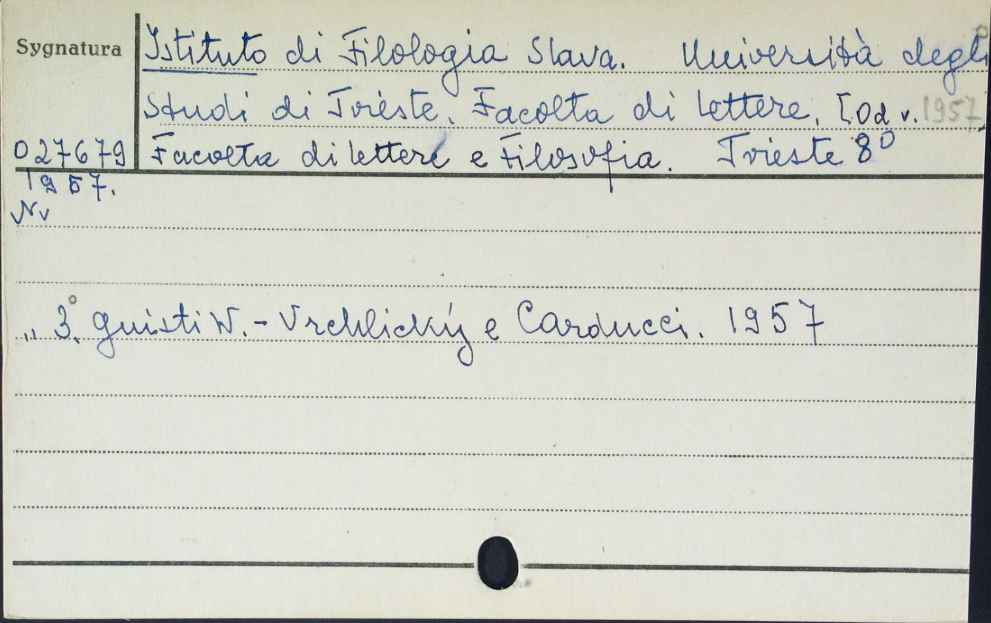 Sygnatura
Istituto di Filologia Slava. Università degli
Studi di Trieste. Facolta di lettere. [Od v. 1957]
027679 Facolta di lettere e Filosofia. Trieste 8°
1957.
Nv
„ 3°. guisti W. - Vrchlický e Carducci. 1957